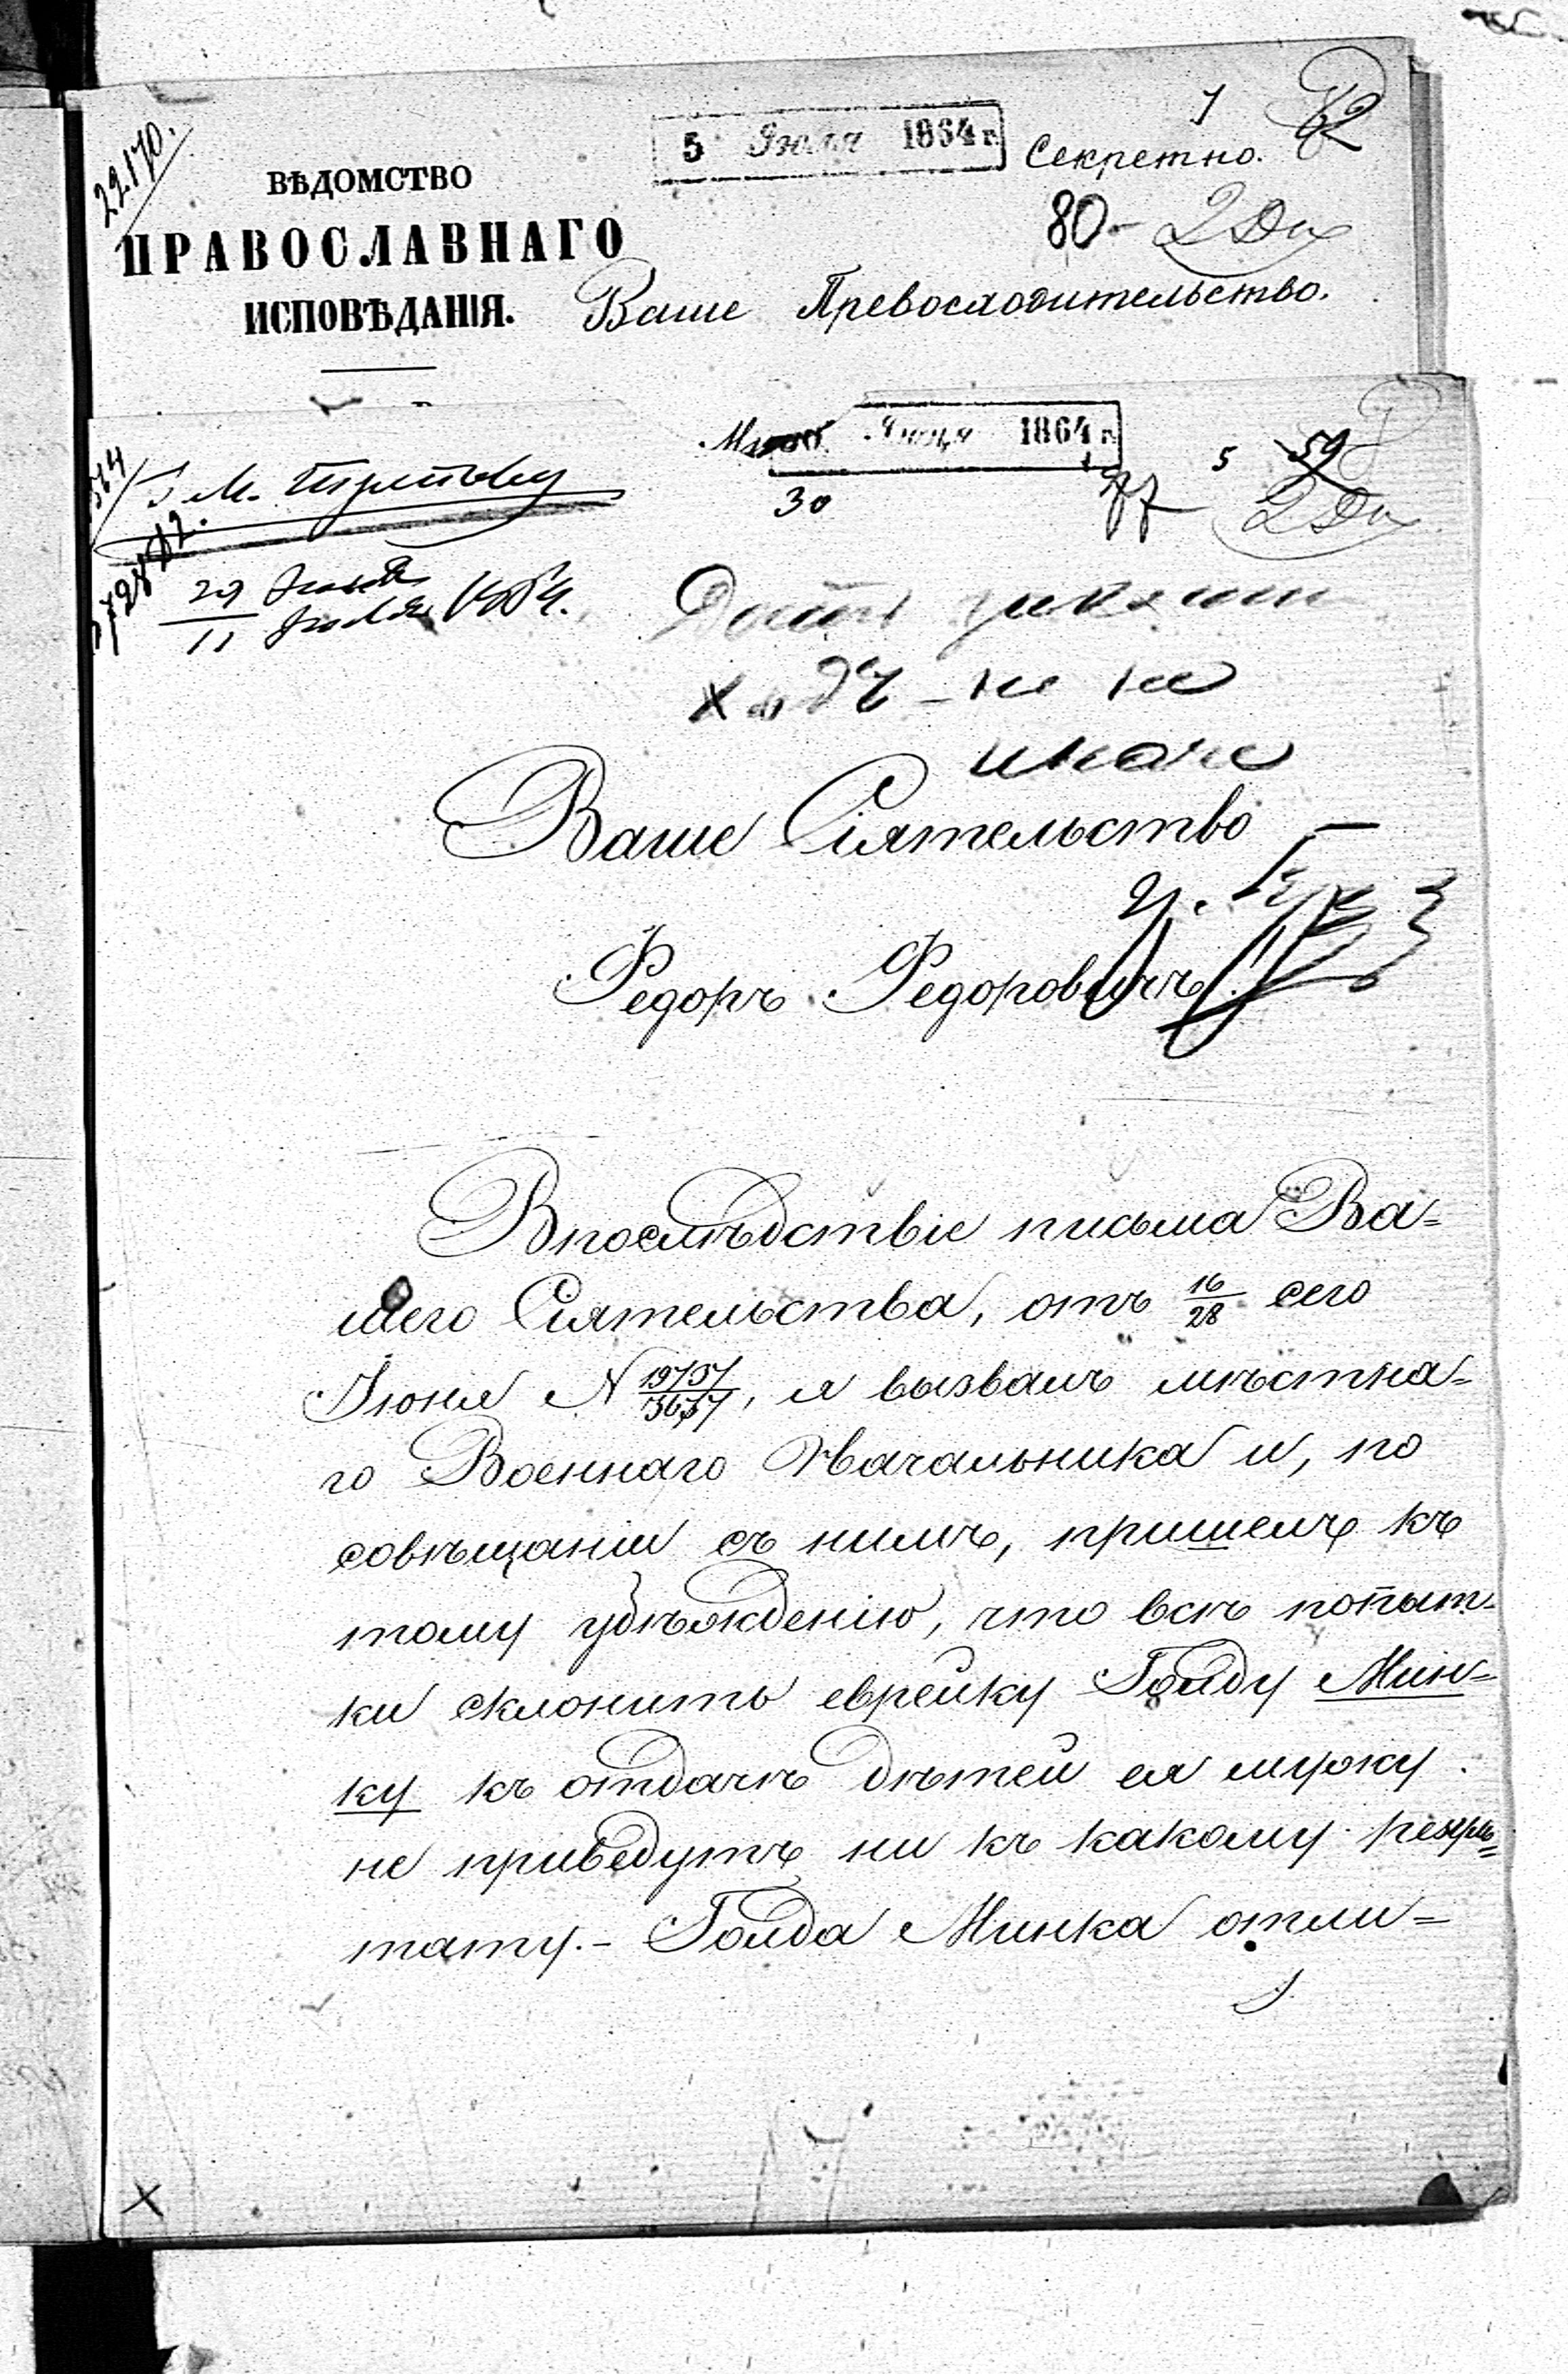 22170.
ВѢДОМСТВО
ПРАВОСЛАВНАГО
ИСПОВѢДАНІЯ.
5 Іюля 1864 г.
Секретно.
62
80 -
Ваше Превосходительство.
Іюня 1864 г.
30
77
5
59
29 Іюня
11 Іюля 1864.
ходъ - не
иначе
Ваше Сіятельство
Федоръ Федоровичъ!
Впослѣдствіе письма Ва=
шего Сіятельства, отъ 16/28 сего
Іюня N 19737/3657, я вызвалъ мѣстна=
го Военнаго Начальника и, по
совѣщаніи съ нимъ, пришелъ къ
тому убѣжденію, что всѣ попыт-
ки склонить еврейку Голду Мин=
ку къ отдачѣ дѣтей ея мужу
не приведутъ ни къ какому резуль=
тату. - Голда Минка отли=